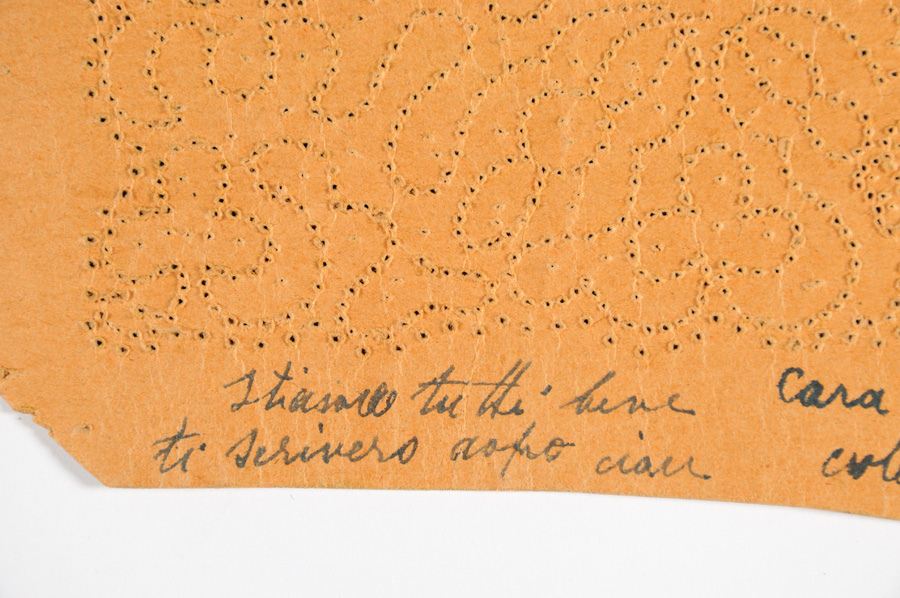 stiamo tutti bene
ti scrivero dopo ciau
Cara